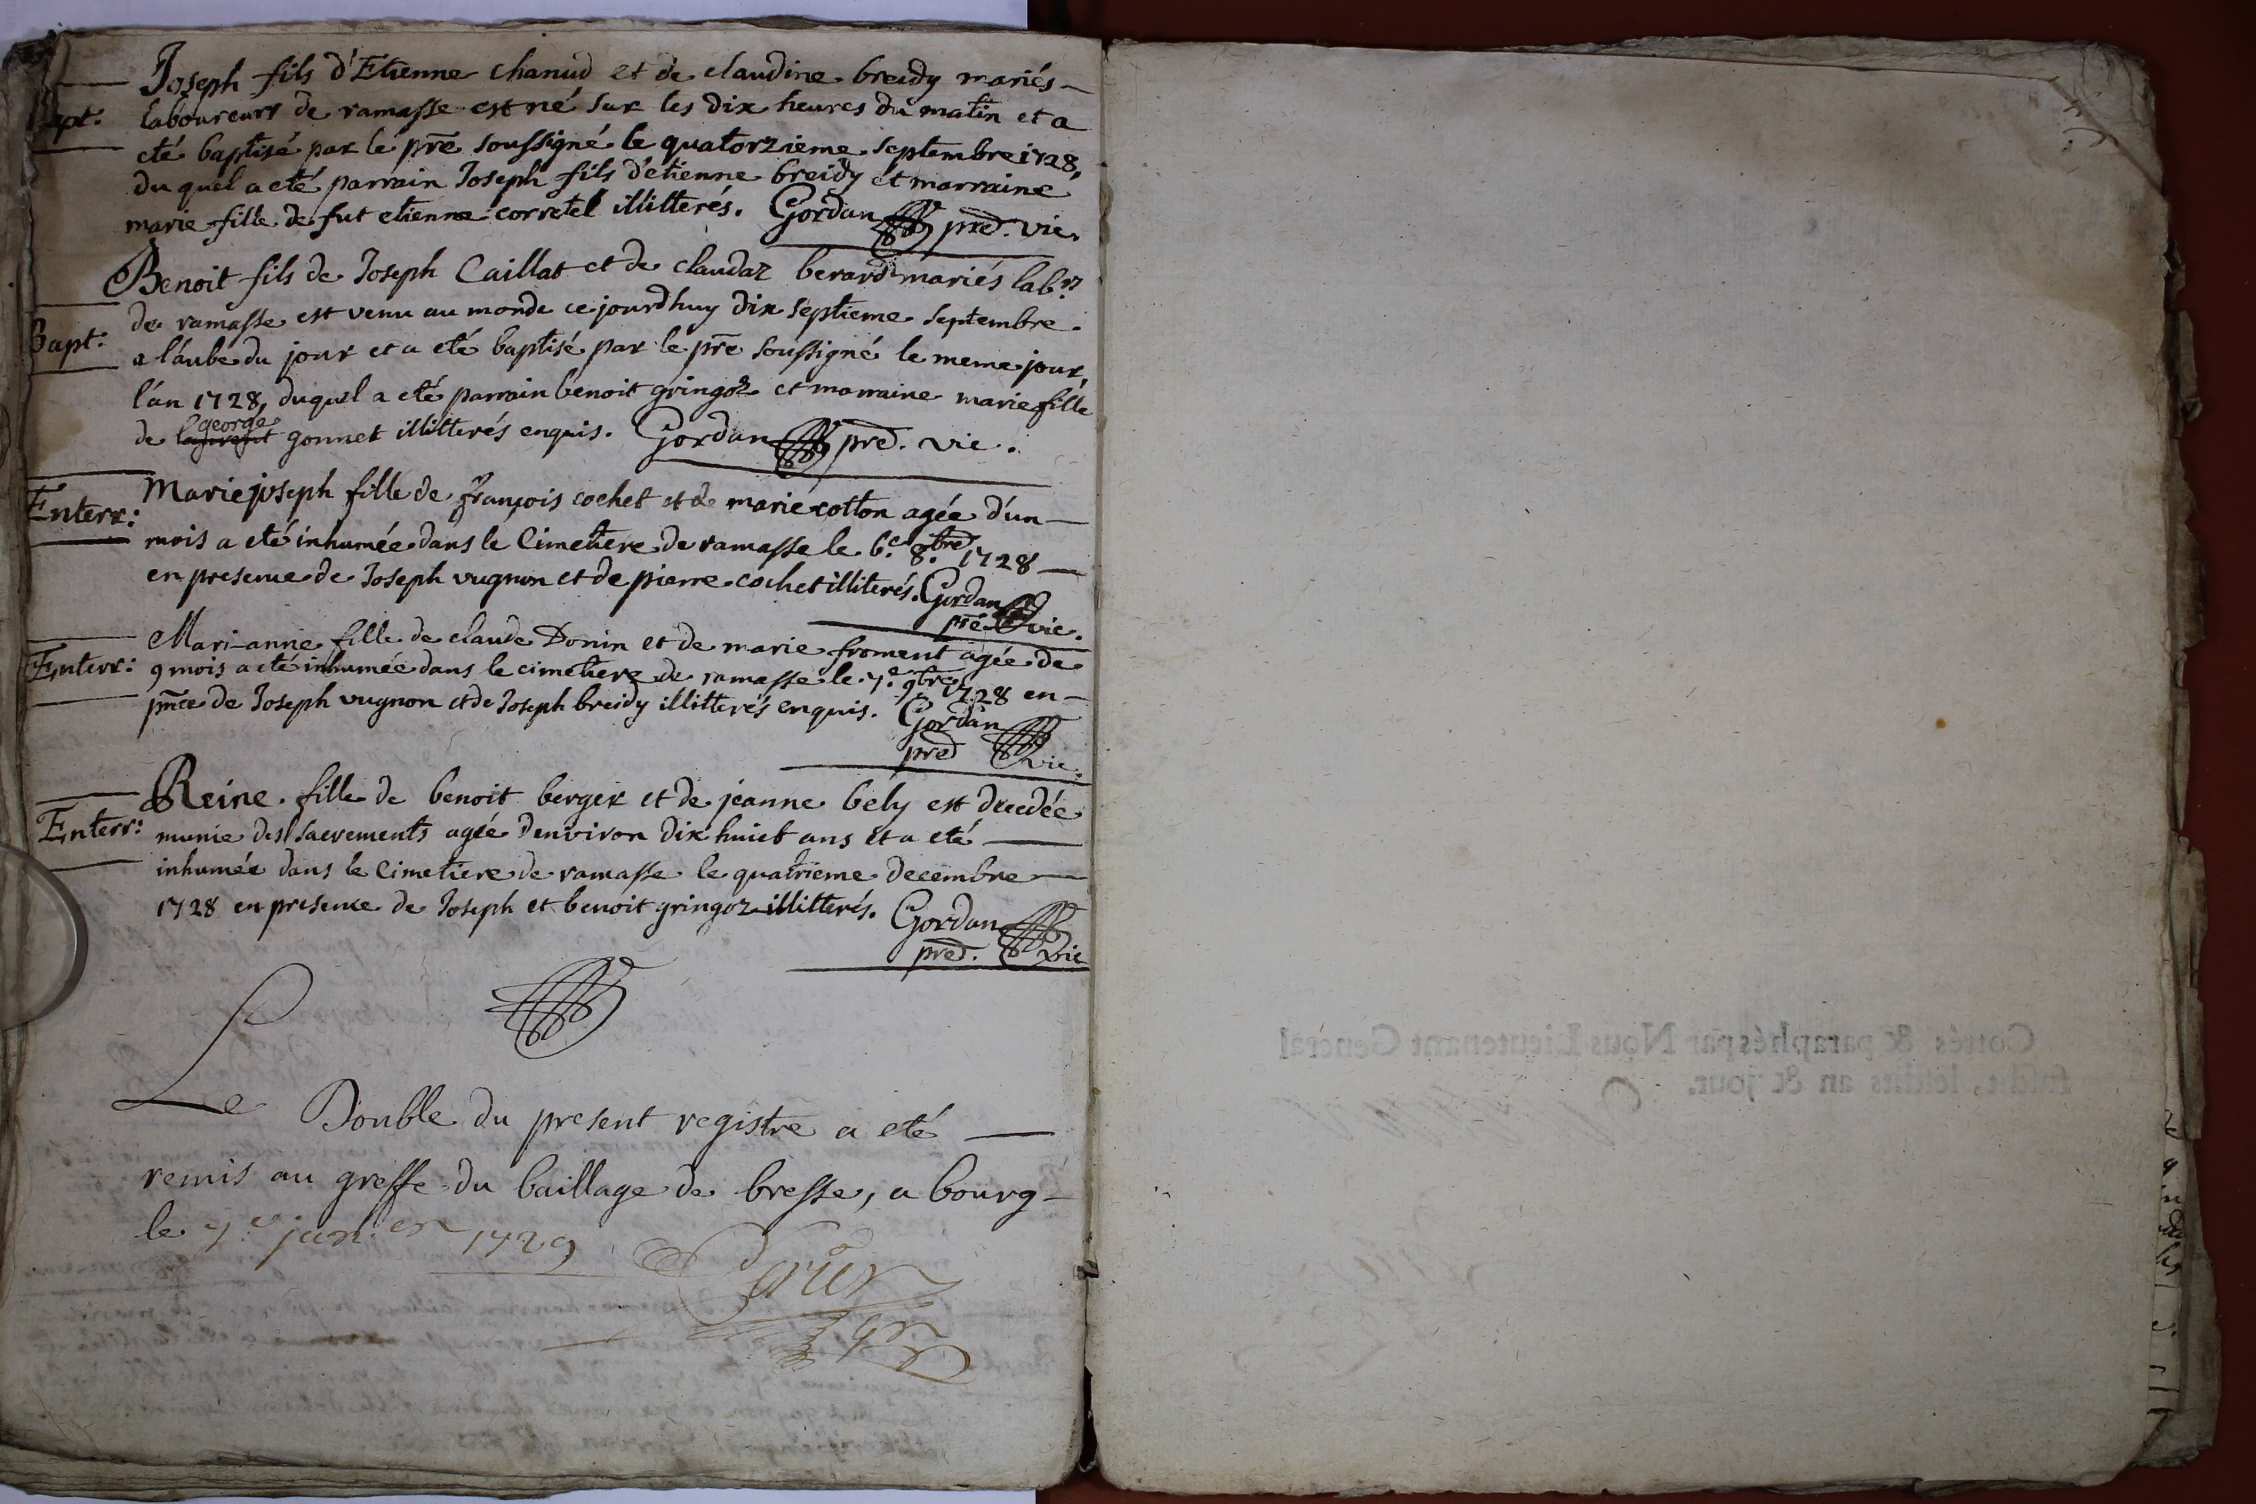 Joseph fils d'Etienne chanud et de claudine breidy mariés
Bapt: laboureurs de ramasse est né sur les dix heures du matin et a
eté baptisé par le pre soussigné le quatorzieme septembre 1728,
du quel a eté parrain Joseph fils d'etienne breidy et marraine
marie fille de fut etienne corretel illitterés. Gordan pred. vic.
Benoit fils de Joseph Caillat et de claudaz berard mariés labrs
de ramasse est venu au monde ce jourdhuy dix septieme septembre
Bapt: a l'aube du jour et a eté baptisé par le pre soussigné le meme jour,
l'an 1728, duquel a eté parrain benoit gringoz et marraine marie fille
de george gonnet illitterés enquis. Gordan pred. vic.
Enterr: Marie joseph fille de françois cochet et de marie cotton agée d'un
mois a eté inhumée dans le Cimetiere de ramasse le 6.e 8.bre 1728
en presence de Joseph vugnon et de pierre cochet illiterés. Gordan
pre vic.
Mari-anne fille de claude Donin et de marie froment agée de
Enterr: 9 mois a eté inhumée dans le cimetiere de ramasse le 7.e 9bre 1728 en
pnce de Joseph vugnon et de Joseph breidy illitterés enquis. Gordan
pred vic.
Reine fille de benoit berger et de jeanne bely est decedée
Enterr: munie des sacrements agée denviron dix huict ans et a eté
inhumée dans le Cimetiere de ramasse le quatrieme decembre
1728 en presence de Joseph et benoit gringoz illitterés. Gordan
pred. vic
Le Double du present registre a eté
remis au greffe du baillage de bresse, a bourg
le 7.e jan.er 1729
Cottés & paraphés par Nous Lieutenant General
susdit, lesdits an & jour.